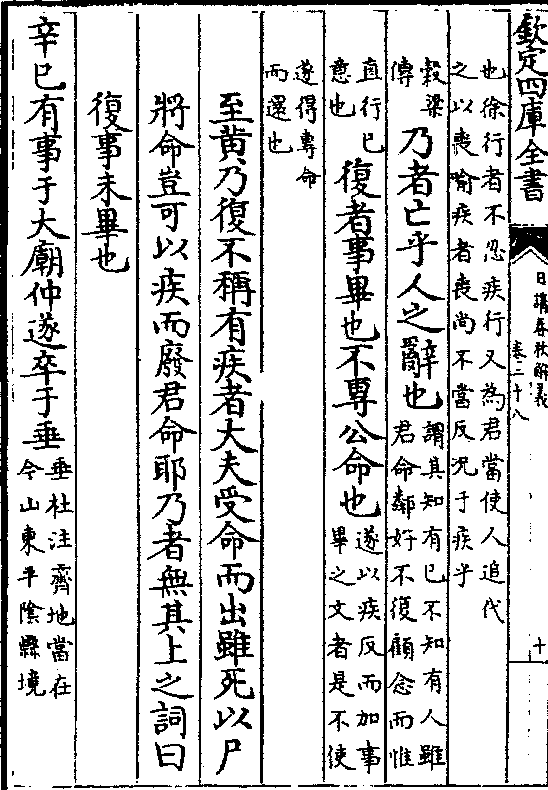 欽定四庫全書
日講春秋解義
卷二十八
十
也徐行者不忍疾行又為君當使人追代
之以喪喻疾者喪尚不當反況于疾乎
穀梁
傳
乃者亡乎人之辭也
謂其知有已不知有人雖
君命鄰好不復顧念而惟
直行已
意也
復者事畢也不専公命也
遂以疾反而加事
畢之文者是不使
遂得専命
而還也
至黄乃復不稱有疾者大夫受命而出雖死以尸
將命豈可以疾而廢君命耶乃者無其上之詞曰
復事未畢也
辛巳有事于大廟仲遂卒于垂
垂杜注齊地當在
今山東平陰縣境